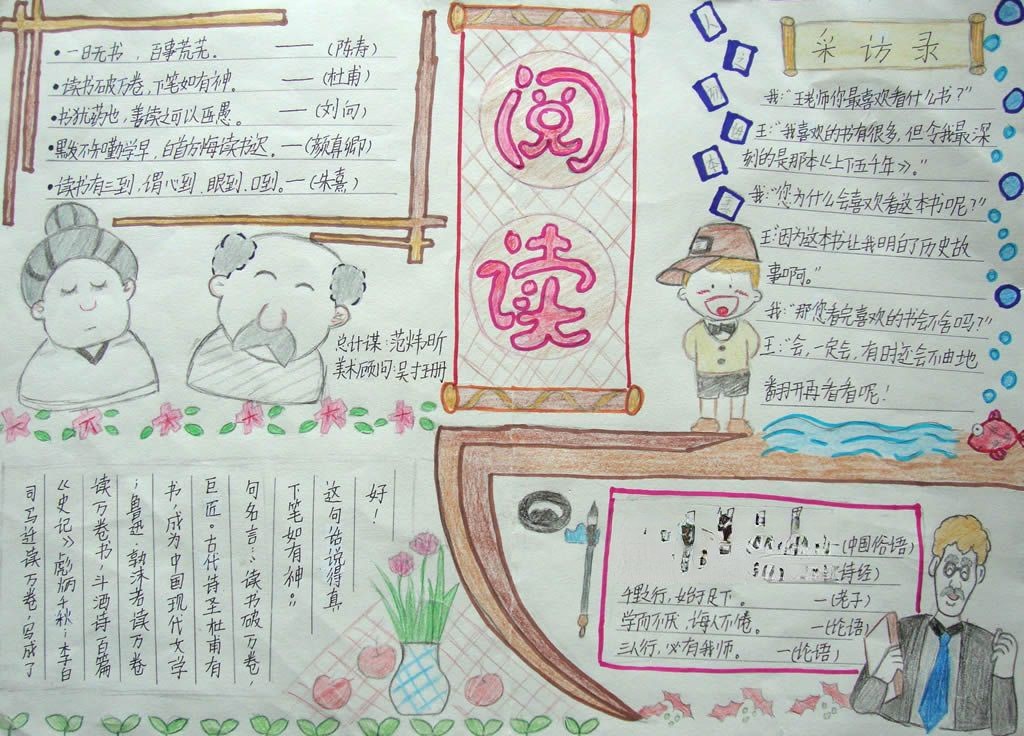 •一日无书，百事荒芜。——(陈寿)
•读书破万卷，下笔如有神。——(杜甫)
•书犹药也，善读之可以医愚。——(刘向)
•黑发不知勤学早，白首方悔读书迟。—(颜真卿)
•读书有三到，谓心到、眼到、口到。—(朱熹)
总计谋：范炜昕
美术顾问：吴
阅读
人之初性本善
采访录
我：“王老师你最喜欢看什么书？”
王：“我喜欢的书有很多，但令我最深
刻的是那本《上下五千年》。”
我：“您为什么会喜欢看这本书呢？”
王：“因为这本书让我明白了历史故
事啊。”
我：“那您看完喜欢的书会不舍吗？”
王：“会，一定会，有时还会不由地
翻开再看看呢！
司马迁读万卷，写成了
《史记》，彪炳千秋；李白
读万卷书，斗酒诗百篇
；鲁迅、郭沫若读万卷
书，成为中国现代文学
巨匠。古代诗圣杜甫有
句名言：“读书破万卷，
下笔如有神。”
这句话说得真
好！
—(中国俗语)
(诗经)
千里之行，始于足下。—(老子)
学而不厌，诲人不倦。—(论语)
三人行，必有我师。—(论语)